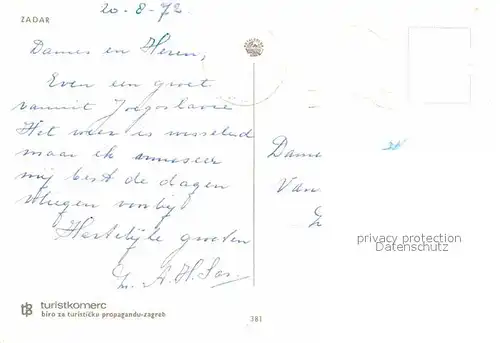 20-8-72
ZADAR
Dames en Heren,
Even een groet
vanuit Joegoslavië
Het weer is wisselend
maar ik amuseer
mij best de dagen
vliegen voorbij
Hartelijke groeten
A.H.
Dame
Van
privacy protection
Datenschutz
tb turistkomerc
biro za turističku propagandu-zagreb
381